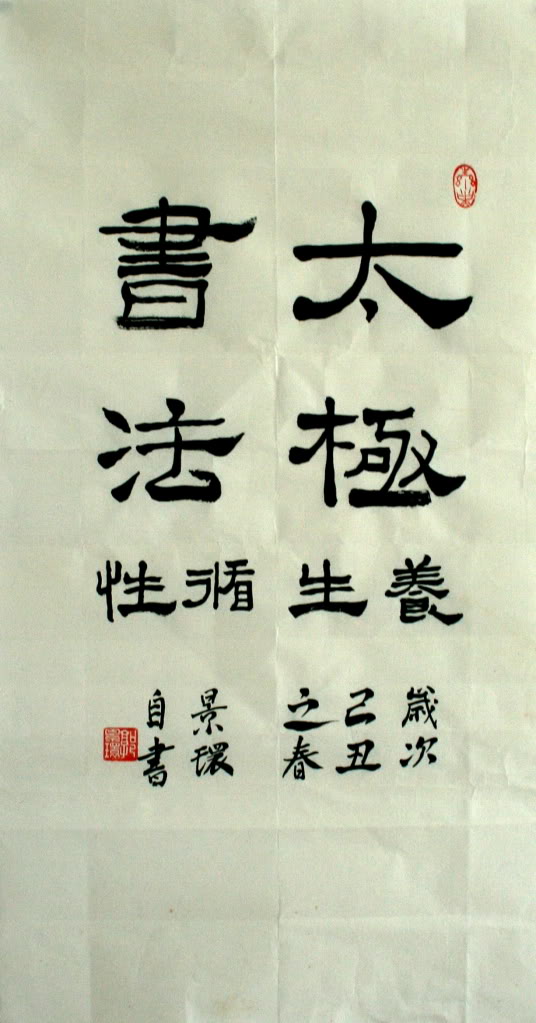 太極
養生
書法
循性
歲次
己丑
之春
景環
自書